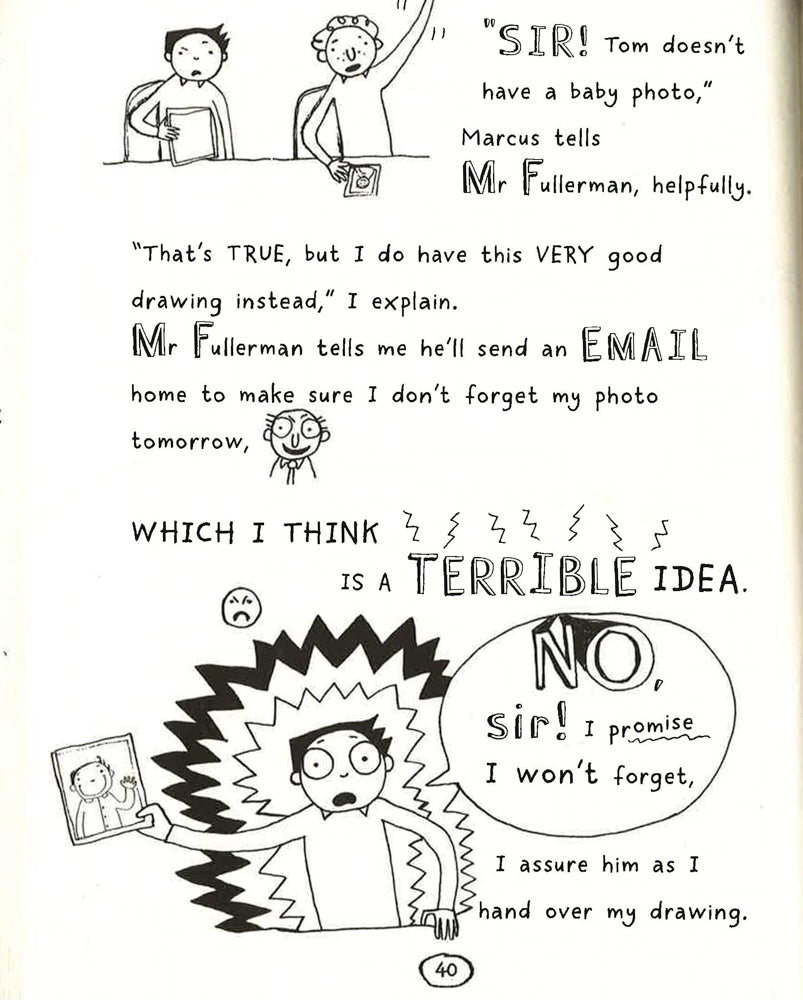 "SIR! Tom doesn't
have a baby photo,"
Marcus tells
Mr Fullerman, helpfully.
"That's TRUE, but I do have this VERY good
drawing instead," I explain.
Mr Fullerman tells me he'll send an EMAIL
home to make sure I don't forget my photo
tomorrow,
WHICH I THINK
IS A TERRIBLE IDEA.
NO,
sir! I promise
I won't forget,
I assure him as I
hand over my drawing.
40